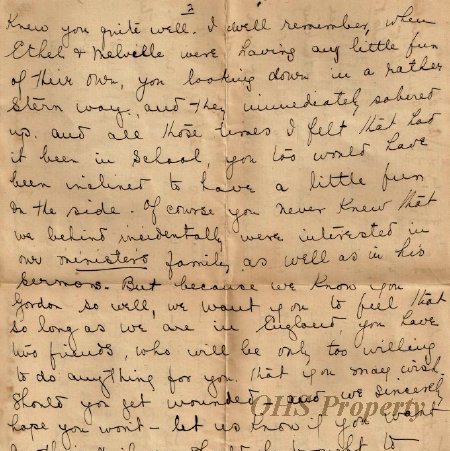 3
Knew you quite well. I well remember, when
Ethel & Melville were having any little fun
of their own, you looking down in a rather
stern way, and they immediately sobered
up. and all those times I felt that had
it been in school, you too would have
been inclined to have a little fun
on the side. Of course you never knew that
we behind incidentally were interested in
our ministers family as well as in his
sermons. But because we know you
Gordon so well, we want you to feel that
so long as we are in England, you have
two friends, who will be only too willing
to do anything for you, that you may wish.
Should you get wounded - and we sincerely
hope you won't - let us know if you want
GHS Property